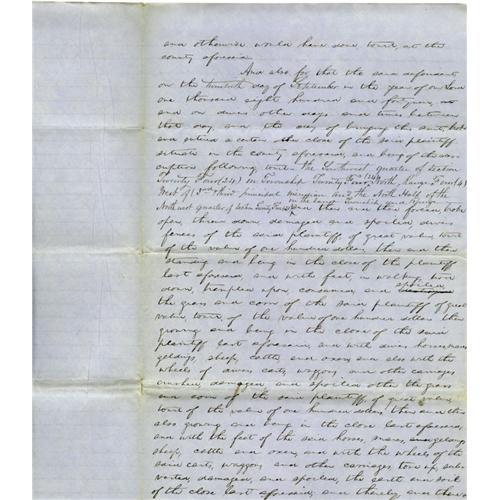 and otherwise would have done, to wit, at the
county aforesaid.
And also for that the said defendant
on the twentieth day of September in the year of our Lord
one thousand eight hundred and forty, and
and on divers other days and times between
that day and the day of bringing this suit, broke
and entered a certain other close of the said plaintiff
situate in the county aforesaid, and being of the des-
cription following to wit the Southwest quarter of Section
Twenty Four (24) in Township Twenty Four (24) North, Range Four (4)
West of (3rd) Third principal meridian and the North Half of the
Northeast quarter of Section
in the same Township and Range
and then and there forcing, broke
open, threw down, damaged and spoiled divers
fences of the said plaintiff of great value, to wit
of the value of one hundred dollars then and there
standing and being in the close of the plaintiff
last aforesaid, and with feet, in walking, trod
down, trampled upon, consumed and spoiled
the grass and corn of the said plaintiff of great
value, to wit of the value of one hundred dollars then
growing and being in the close of the said
plaintiff last aforesaid, and with divers horses, mares
geldings, sheep, cattle and oxen, and also with the
wheels of divers carts, waggons and other carriages
crushed, damaged and spoiled other the grass
and corn of the said plaintiff, of great value,
to wit of the value of one hundred dollars, then and there
also growing and being in the close last aforesaid,
and with the feet of the said horses, mares, and geldings
sheep, cattle and oxen, and with the wheels of the
said carts, waggons and other carriages tore up, sub-
verted, damaged, and spoiled, the earth and soil
of the close last aforesaid, and thereby and there